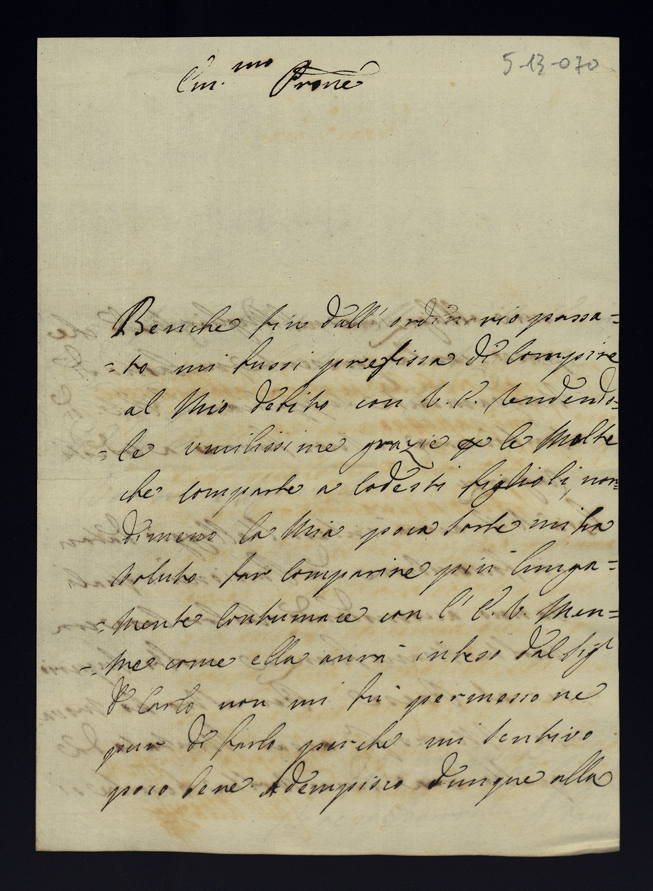 5-13-070
Em.mo Prone
Benche fin dall'ordinario passa=
=to mi fussi prefissa di compire
al mio debito con V.E. rendendo=
=le umilissime grazie per le molte
che comparte a codesti figlioli, non=
dimeno la mia poca sorte mi ha
voluto far comparire più lunga=
=mente contumace con l'E.V. men=
=tre come ella aurà inteso dal Sigr
D. Carlo non mi fù permesso ne
pur di farlo perche mi sentivo
poco bene adempisco dunque alla